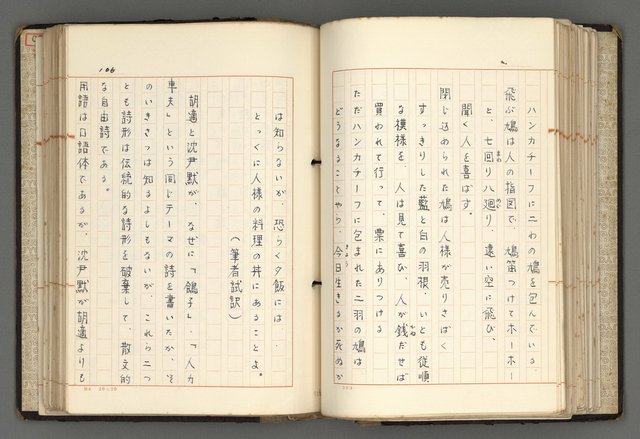 ハンカチーフに二わの鳩を包んでいる。
飛ぶ鳩は人の指図で、鳩笛つけてホーホー
と、七回り八廻り、遠い空に飛び、
聞く人を喜ばす。
閉じ込められた鳩は人様が売りさばく
すっきりした藍と白の羽根、いとも従順
な模様を、人は見て喜び、人が銭だせば
買われて行って、粟にありつける
ただハンカチーフに包まれた二羽の鳩は
どうなることやら、今日生きるか死ぬか
106
は知らないが、恐らく夕飯には…
とっくに人様の料理の丼にあることよ。
(筆者試訳)
胡適と沈尹黙が、なぜに「鴿子」、「人力
車夫」という同じテーマの詩を書いたか、そ
のいきさつは知るよしもないが、これら二つ
とも詩形は伝統的な詩形を破棄して、散文的
な自由詩である。
用語は口語体であるが、沈尹黙が胡適よりも